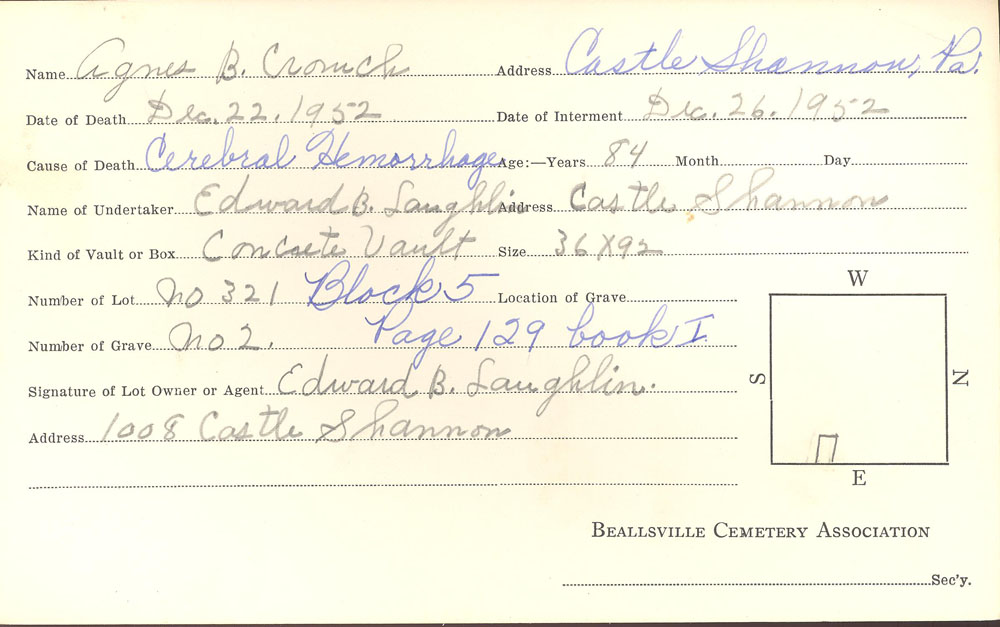 Name Agnes B. Crouch Address Castle Shannon, Pa.
Date of Death Dec. 22. 1952 Date of Interment Dec. 26. 1952
Cause of Death Cerebral Hemorrhage Age:—Years 84 Month Day
Name of Undertaker Edward B. Laughlin Address Castle Shannon
Kind of Vault or Box Concrete Vault Size 36X92
Number of Lot No 321 Block 5 Location of Grave
Number of Grave No 2. Page 129 book I
Signature of Lot Owner or Agent Edward B. Laughlin.
Address 1008 Castle Shannon
W
S
N
E
Beallsville Cemetery Association
Sec'y.